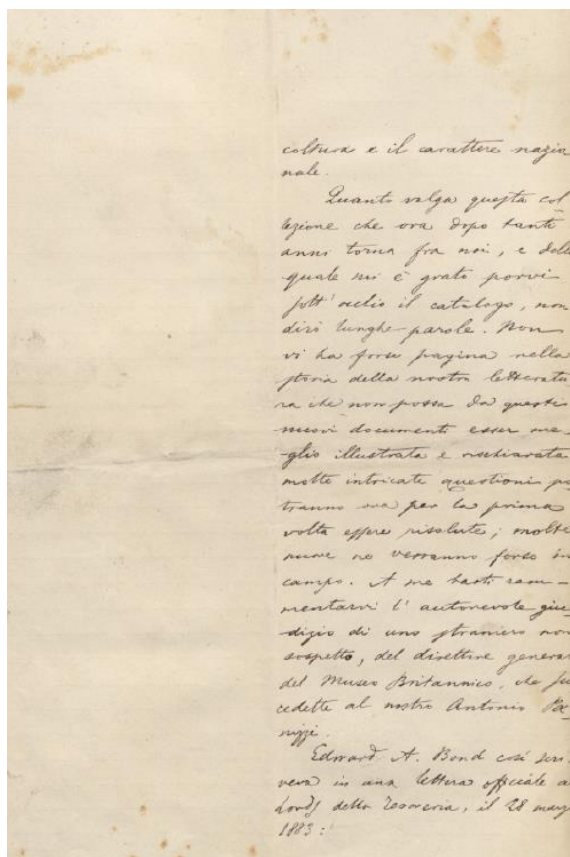 coltura e il carattere nazio
nale.
Quanto valga questa col
lezione che ora dopo tanti
anni torna fra noi, e della
quale mi è grato porvi
sott' occhio il catalogo, non
dirò lunghe parole. Non
vi ha forse pagina nella
storia della nostra letteratu
ra che non possa da questi
nuovi documenti esser me_
glio illustrata e rischiarata
molte intricate questioni po
tranno ora per la prima
volta essere risolute; molte
nuove ne verranno forse in
campo. A me basti ram_
mentarvi l' autorevole giu_
dizio di uno straniero non
sospetto, del direttore general
del Museo Britannico, che su
cedette al nostro Antonio Pa
nizzi.
Edward A. Bond così scri
veva in una lettera officiale a
Lords della Tesoreria, il 28 marz
1883: